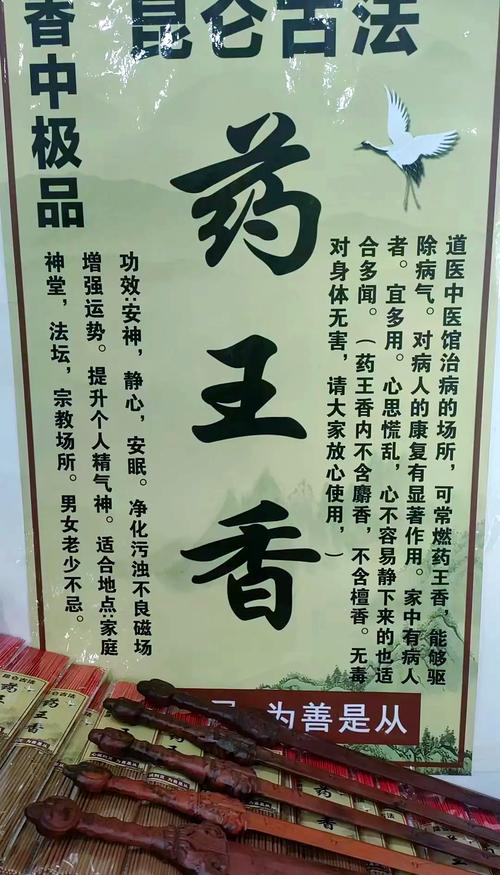 昆仑古法
香中极品
药王香
道医中医馆治病的场所，可常燃药王香，能够驱
除病气。对病人的康复有显著作用。家中有病人
者。宜多用。心思慌乱，心不容易静下来的也适
合多闻。（药王香内不含麝香，不含檀香。无毒
对身体无害，请大家放心使用，）
功效:安神，静心，安眠。净化污浊不良磁场
增强运势。提升个人精气神。适合地点:家庭
神堂，法坛，宗教场所。男女老少不忌。
为善是从
药王香
药王香
药王香